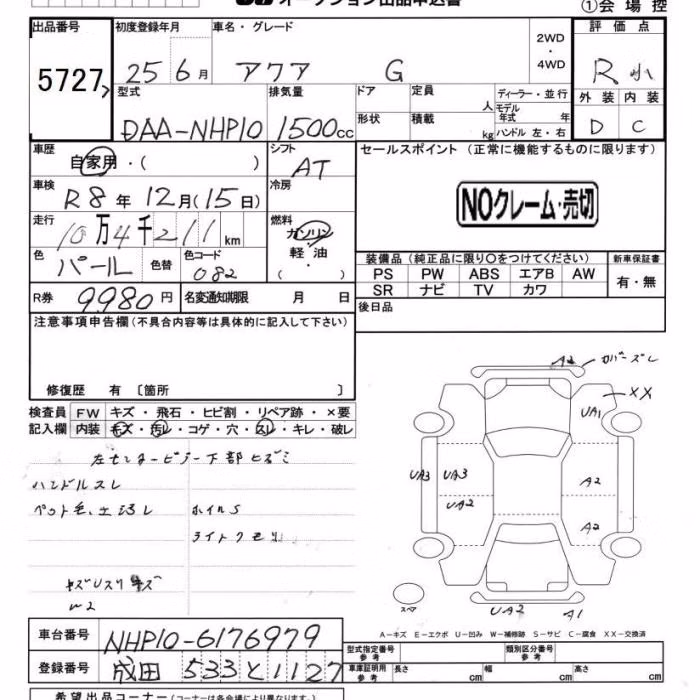 オークション出品申込書
①会場控
出品番号 初度登録年月 車名・グレード 2WD・4WD 評価点
5727 25年6月 アクア G R小
型式 排気量 ドア 定員 人 ディーラー・並行 外装 内装
DAA-NHP10 1500cc 形状 積載 kg モデル年式 年 ハンドル 左・右 D C
車歴 自家用・( ) シフト AT セールスポイント（正常に機能するものに限ります）
車検 R8年12月(15日) 冷房
NOクレーム・売切
走行 10万4千211km 燃料 ガソリン・軽油・( )
色 パール 色替 色コード 082
装備品（純正品に限り○をつけてください） 新車保証書
PS PW ABS エアB AW 有・無
SR ナビ TV カワ
R券 9980円 名変通知期限 月 日 後日品
注意事項申告欄（不具合内容等は具体的に記入して下さい）
修復歴 有〔箇所 〕
検査員記入欄 FW キズ・飛石・ヒビ割・リペア跡・×要
内装 キズ・汚レ・コゲ・穴・スレ・キレ・破レ
左センターピラー下部ヒズミ
ハンドルスレ
ペット毛、土汚レ ホイルS
ライトクモリ
A2 カバーズレ
XX
UA1
UA3 UA3 A2
UA2
A2
スペア UA2 A1
A－キズ E－エクボ U－凹み W－補修跡 S－サビ C－腐食 XX－交換済
車台番号 NHP10-6176979
登録番号 成田 533 と 1127
型式指定番号 参考 類別区分番号 参考
車庫証明用 参考 長さ cm 幅 cm 高さ cm
希望出品コーナー（コーナーは各会場により異なります）